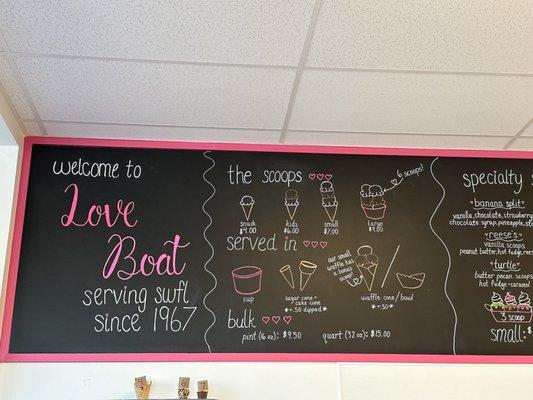 welcome to
Love
Boat
serving swfl
since 1967
the scoops
6 scoops!
snack
$4.00
kids
$6.00
small
$7.00
large
$9.00
served in
our small
waffle has
a bonus
scoop!
cup
sugar cone +
cake cone
*+.50 dipped*
waffle cone/bowl
*+.50*
bulk
pint (16 oz): $9.50
quart (32 oz): $15.00
specialty
"banana split"
vanilla, chocolate, strawberry
chocolate syrup, pineapple,
"reese's"
vanilla scoops
peanut butter, hot fudge,
"turtle"
butter pecan scoops
hot fudge + caramel
3 scoop
small: